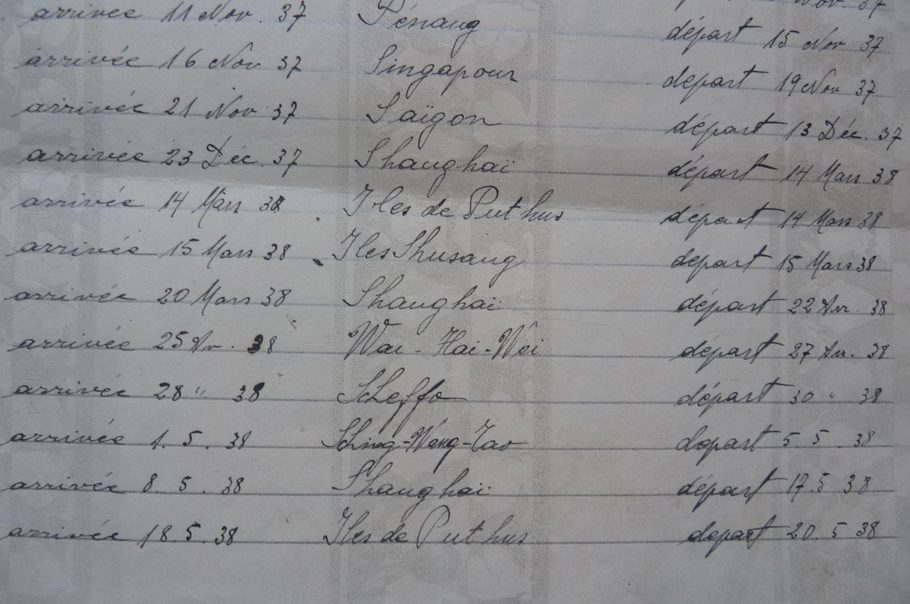 arrivée 11 Nov. 37 Pénang départ 15 Nov 37
arrivée 16 Nov 37 Singapour départ 19 Nov 37
arrivée 21 Nov. 37 Saïgon départ 13 Déc. 37
arrivée 23 Déc. 37 Shanghaï départ 14 Mars 38
arrivée 14 Mars 38 Iles de Put hus départ 14 Mars 38
arrivée 15 Mars 38 Iles Shusang départ 15 Mars 38
arrivée 20 Mars 38 Shanghaï départ 22 Avr. 38
arrivée 25 Av. 38 Wai-Hai-Wei départ 27 Av. 38
arrivée 28 " 38 Scheffo départ 30 " 38
arrivée 1. 5. 38 Ching-Wang-Tao départ 5 5. 38
arrivée 8. 5. 38 Shanghaï départ 17.5 38
arrivée 18. 5. 38 Iles de Put hus départ 20. 5 38